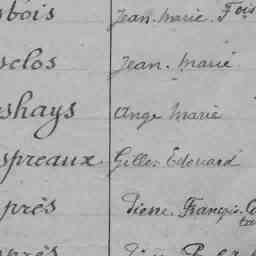 bois Jean-Marie Fois
sclos Jean-Marie
shays Ange Marie
spreaux Gilles Edouard
près Pierre François
près